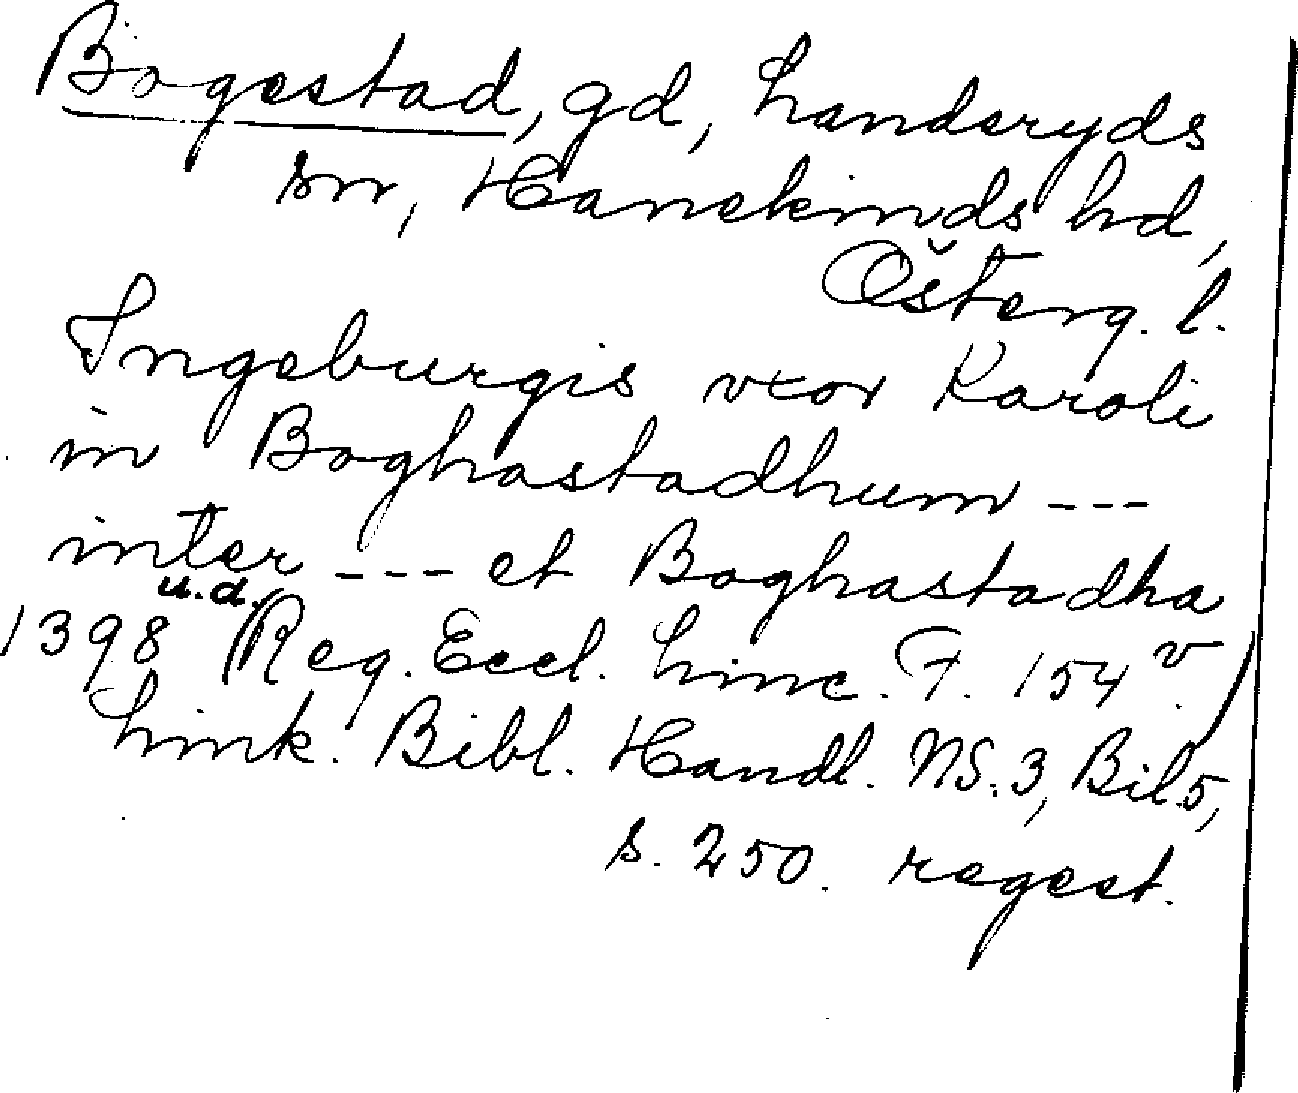 Bogestad, gd, Landeryds
sn, Hanekinds hd,
Österg. l.
Ingeburgis vxor Karoli
in Boghastadhum ---
inter --- et Boghastadha
1398 u.d. Reg. Eccl. Linc. F. 154 v.
Link. Bibl. Handl. NS. 3, Bil. 5,
s. 250. regest.